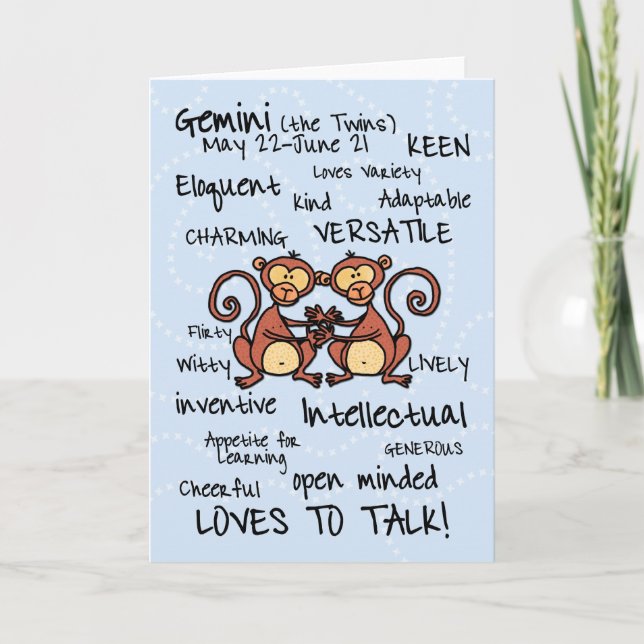 Gemini (the Twins)
May 22-June 21
KEEN
Loves Variety
Eloquent
kind
Adaptable
CHARMING
VERSATILE
Flirty
Witty
LIVELY
inventive
Intellectual
Appetite for
Learning
GENEROUS
Cheerful
open minded
LOVES TO TALK!